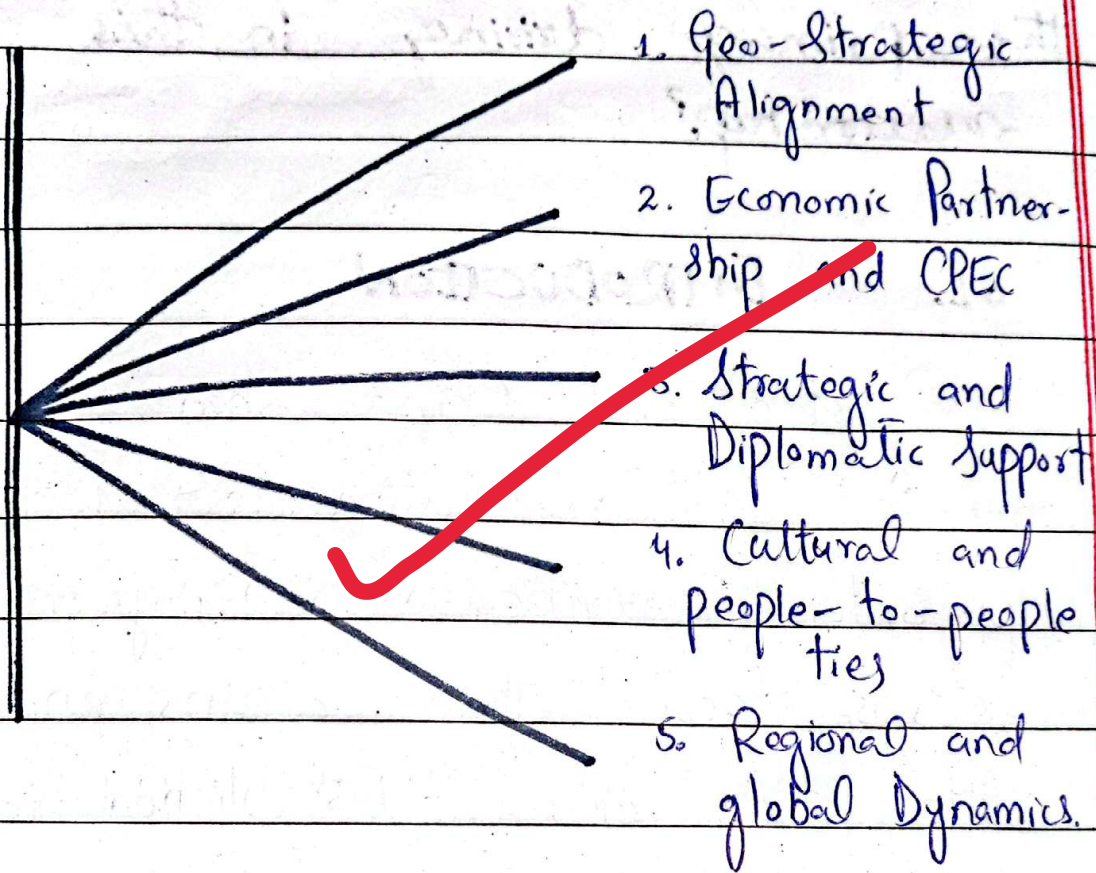 1. Geo-Strategic
Alignment
2. Economic Partner-
ship and CPEC
3. Strategic and
Diplomatic Support
4. Cultural and
people-to-people
ties
5. Regional and
global Dynamics.